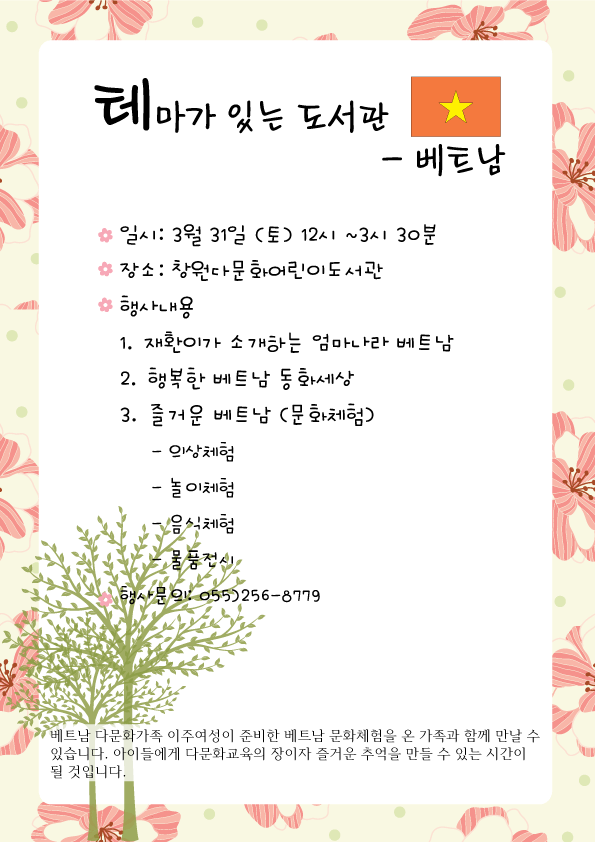 테마가 있는 도서관
- 베트남
일시: 3월 31일 (토) 12시 ~3시 30분
장소: 창원다문화어린이도서관
행사내용
1. 재환이가 소개하는 엄마나라 베트남
2. 행복한 베트남 동화세상
3. 즐거운 베트남 (문화체험)
- 의상체험
- 놀이체험
- 음식체험
- 물품전시
행사문의: 055)256-8779
베트남 다문화가족 이주여성이 준비한 베트남 문화체험을 온 가족과 함께 만날 수
있습니다. 아이들에게 다문화교육의 장이자 즐거운 추억을 만들 수 있는 시간이
될 것입니다.